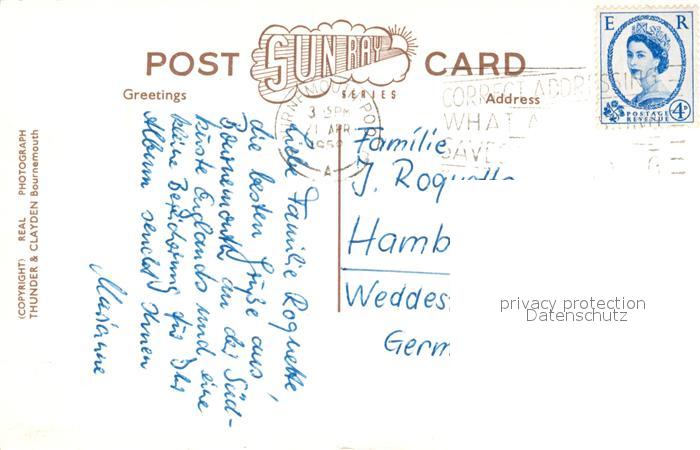 POST SUN RAY CARD
SERIES
Greetings
Address
E R
POSTAGE
REVENUE
4D
BOURNEMOUTH POOLE
3 PM
21 APR
195
A
CORRECT ADDRESSING
WHAT A
SAVES
(COPYRIGHT) REAL PHOTOGRAPH
THUNDER & CLAYDEN Bournemouth
Liebe Familie Roquette,
die besten Grüße aus
Bournemouth an der Süd-
küste Englands und eine
kleine Bereicherung für Ihr
Album sendet Ihnen
Marianne
Familie
J. Roquette
Hamb
Weddes
Germ
privacy protection
Datenschutz